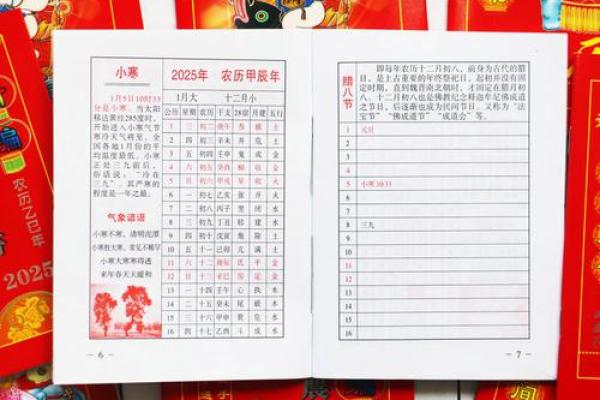 小寒
1月5日10时33
分是小寒。当太阳
移达黄经285度时，
开始进入小寒气节
寒冷天气将至。全国
各地1月份的平
均温度最低。小寒
正处三九前后，
俗话说，“冷在
三九”。其严寒的
程度是一年之最。
气象谚语
小寒不寒，清明泥潭
小寒胜大寒，常见不稀罕
小寒大寒寒得透
来年春天天暖和
2025年 农历甲辰年
1月大 十二月小
公历 星期 农历 干支 28宿 月建 五行
1 三 初二 庚午 参 破 土
2 四 初三 辛未 井 危 土
3 五 初四 壬申 鬼 成 金
4 六 初五 癸酉 柳 收 金
5 日 初六 甲戌 星 收 火
6 一 初七 乙亥 张 开 火
7 二 初八 丙子 翼 闭 水
8 三 初九 丁丑 轸 建 水
9 四 初十 戊寅 角 除 土
10 五 十一 己卯 亢 满 土
11 六 十二 庚辰 氐 平 金
12 日 十三 辛巳 房 定 金
13 一 十四 壬午 心 执 木
14 二 十五 癸未 尾 破 木
15 三 十六 甲申 箕 危 水
16 四 十七 乙酉 斗 成 水
－6－
腊八节
即每年农历十二月初八，前身为古代的腊
日，是上古重要的年终祭祀日，起初并没有固
定时期，直到魏晋南北朝时，才固定在腊月初
八。十二月初八也是佛教纪念释迦牟尼佛成道
之节日，后逐渐也成为民间节日。又称为“法
宝节”“佛成道节”“成道会”等。
1 元旦
2
3
4
5 小寒10:33
6
7
8 三九
9
10
11
12
13
14
15
16
－7－
农历乙巳年
2025